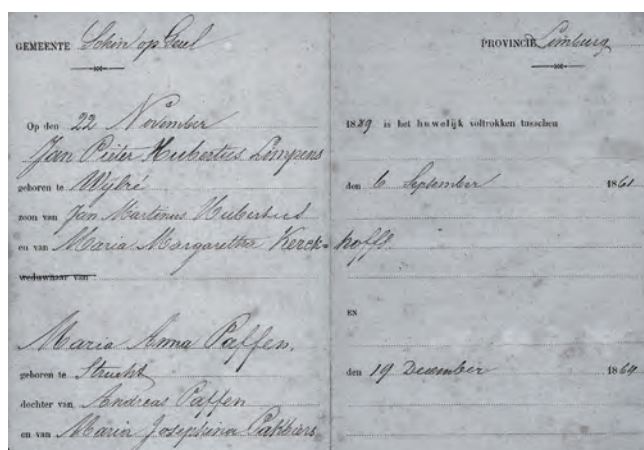 GEMEENTE Schin op Geul PROVINCIE Limburg
Op den 22 November 1889 is het huwelijk voltrokken tusschen
Jan Pieter Hubertus Limpens
geboren te Wijlré den 6 September 1861
zoon van Jan Martinus Hubertus
en van Maria Margaretha Kerck- hoffs
weduwnaar van
EN
Maria Anna Paffen.
geboren te Strucht den 19 December 1864
dochter van Andreas Paffen
en van Maria Josephina Pakbiers